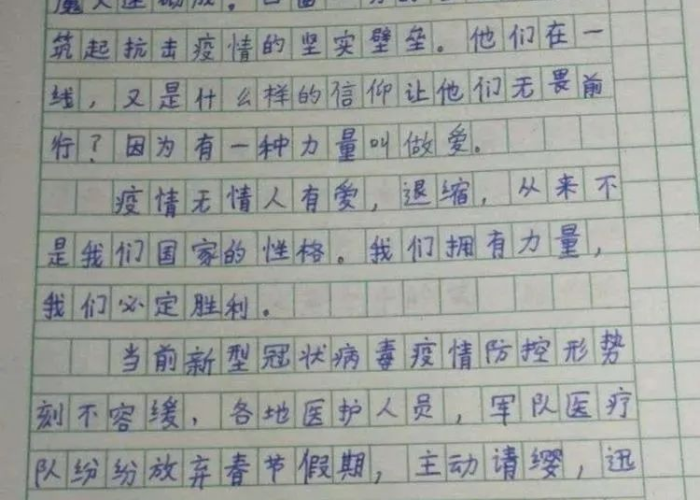 筑起抗击疫情的坚实壁垒。他们在一
线，又是什么样的信仰让他们无畏前
行？因为有一种力量叫做爱。
疫情无情人有爱，退缩，从来不
是我们国家的性格。我们拥有力量，
我们必定胜利。
当前新型冠状病毒疫情防控形势
刻不容缓，各地医护人员，军队医疗
队纷纷放弃春节假期，主动请缨，迅